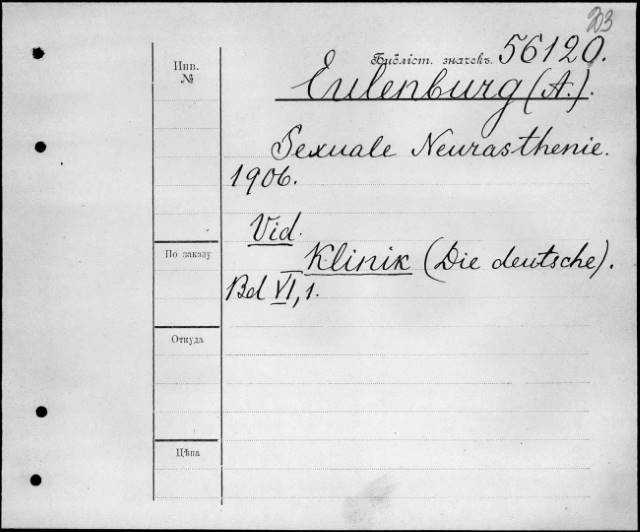 23
Библіот. значекъ. 56120.
Инв.
№
Eulenburg (A.).
Sexuale Neurasthenie.
1906.
Vid.
По заказу
Klinik (Die deutsche).
Bd VI, 1.
Откуда
Цѣна